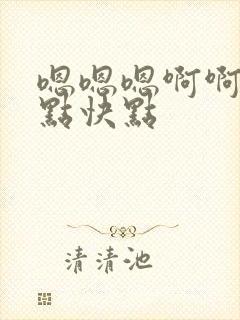 嗯嗯嗯啊啊
點快點
清清池